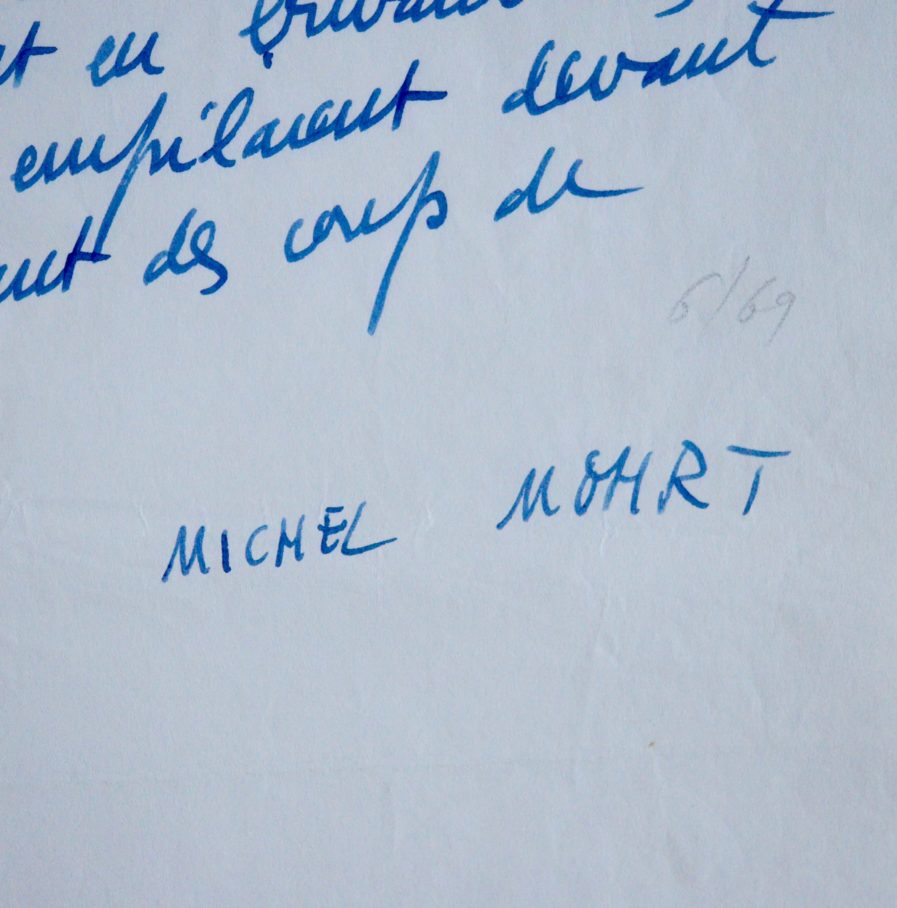 en
empilaient devant
des coup de
6/69
MICHEL MOHRT